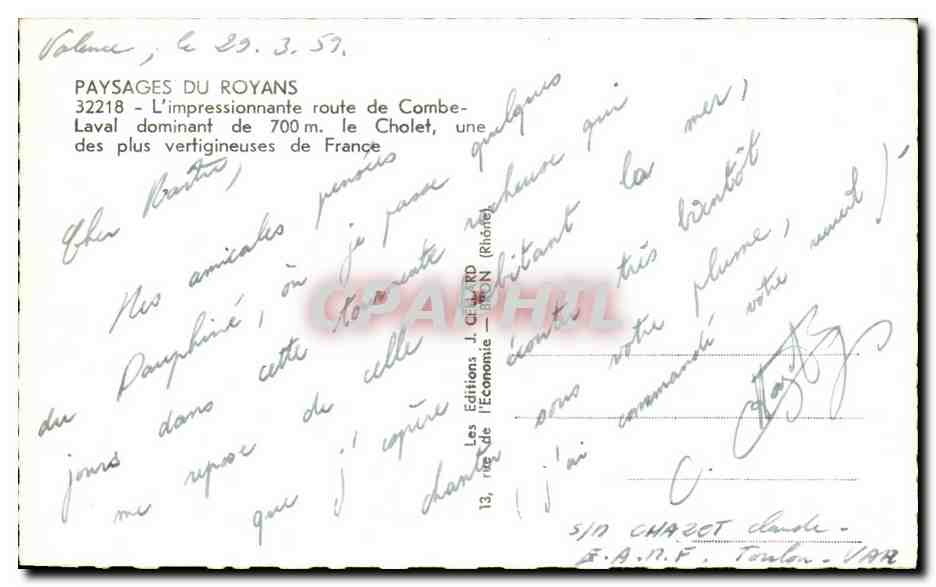 Valence, le 29.3.59.
PAYSAGES DU ROYANS
32218 - L'impressionnante route de Combe-
Laval dominant de 700 m. le Cholet, une
des plus vertigineuses de France
Cher
Mes amicales pensées
du Dauphiné, où je passe quelques
jours dans cette tourmente rocheuse qui
me repose de celle habitant la mer,
que j'espère écouter très bientôt
chanter sous votre plume,
(j'ai commandé votre recueil)
Les Editions J. CELLARD
13, rue de l'Economie — BRON (Rhône)
CPAPHIL
s/n CHAZOT Claude -
E.A.M.F. Toulon - VAR